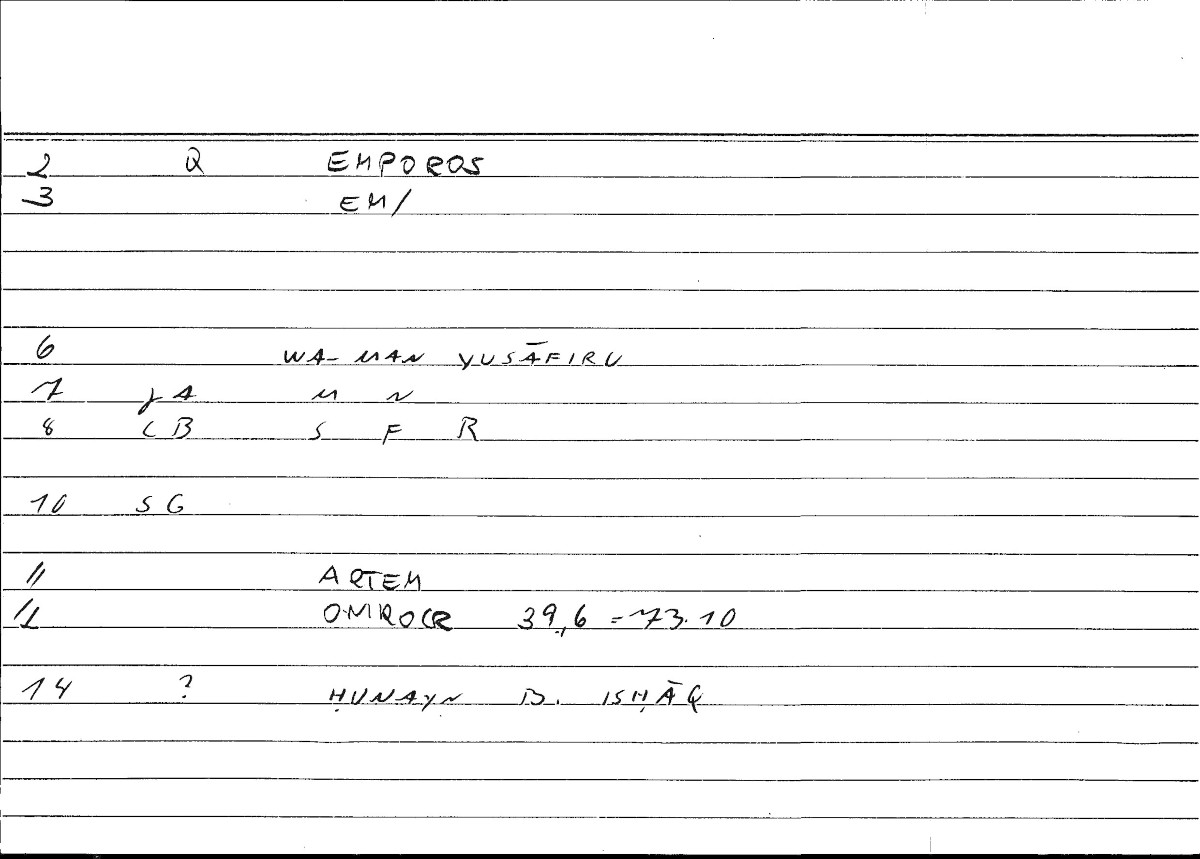 2 Q EMPOROS
3 EM/
6 WA- MAN YUSĀFIRU
7 JA M N
8 CB S F R
10 SG
11 ARTEM
12 ONIROCR 39,6 = 73.10
14 ? ḤUNAYN B. ISḤĀQ